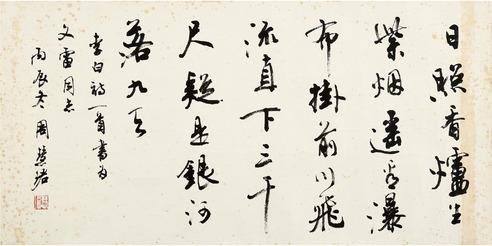 日照香爐生
紫烟遥看瀑
布掛前川飛
流直下三千
尺疑是銀河
落九天
李白詩一首書为
文雷同志
丙辰冬 周慧珺